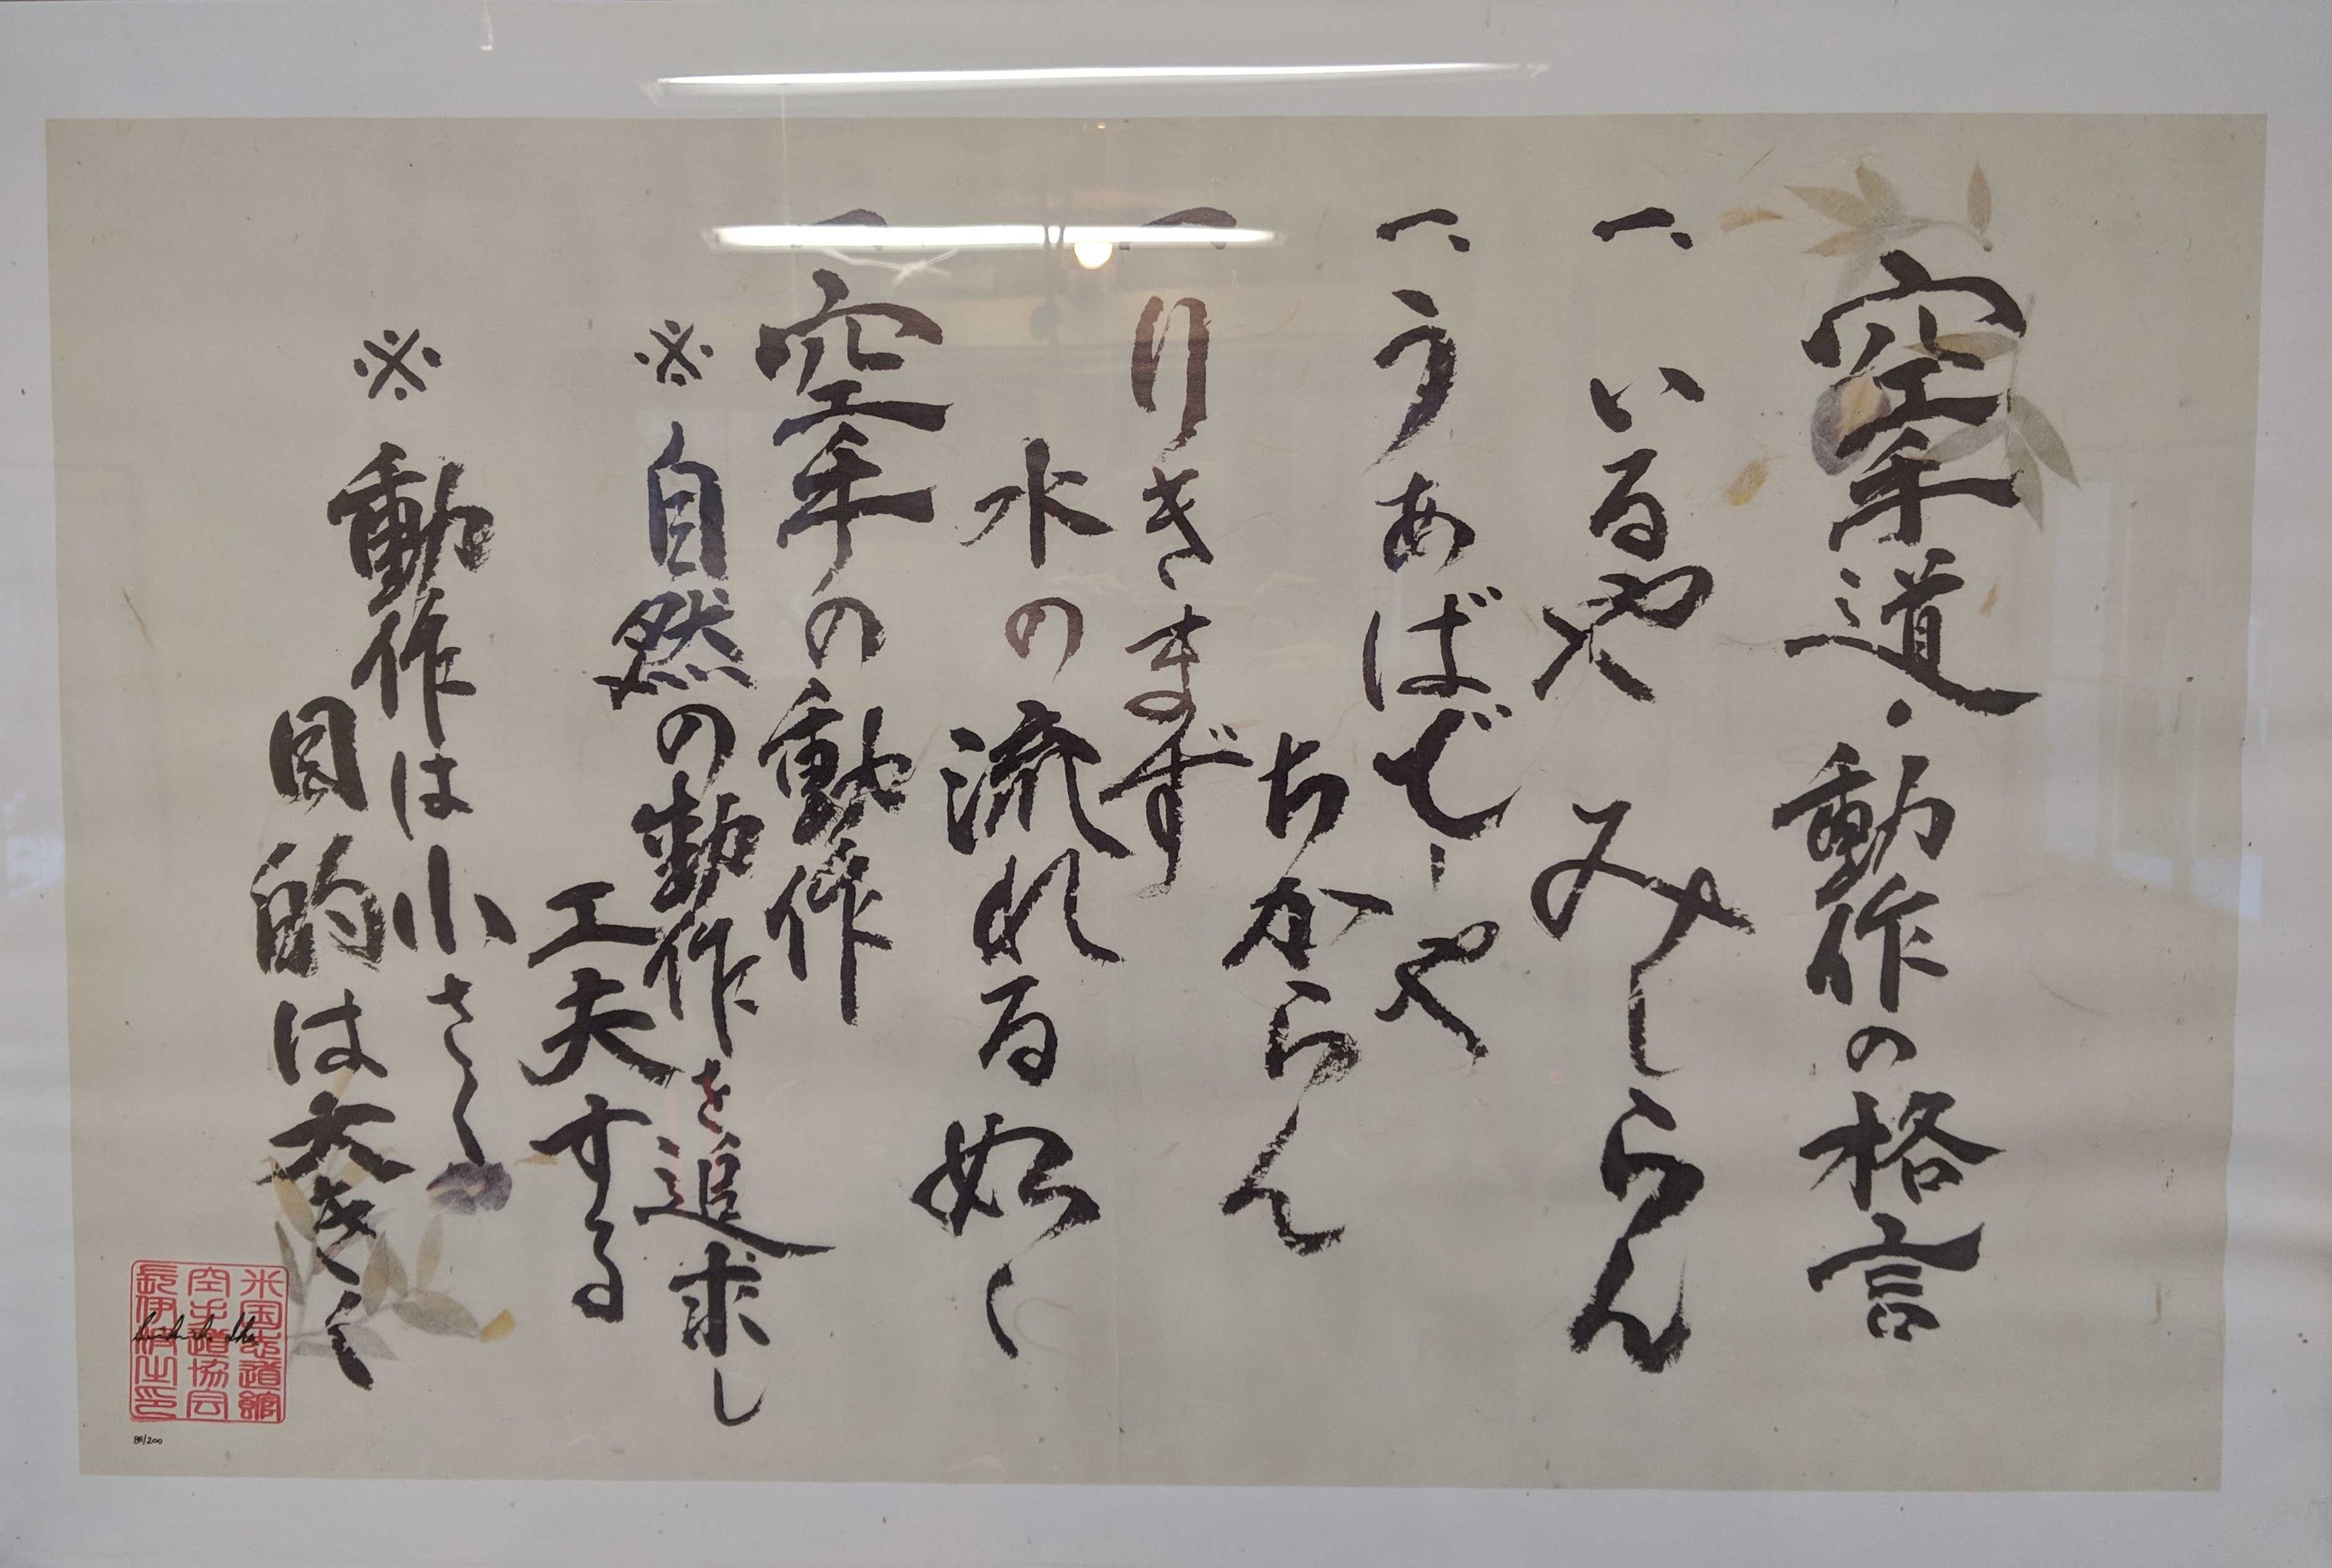 空手道・動作の格言
一、いるや みしらん
一、うあばでーや
ちからん
一、りきまず
水の流れる如く
一、空手の動作
※自然の動作を追求し
工夫する
※動作は小さく
目的は大きく
米国志道館
空手道協会
長伊波之印
88/200